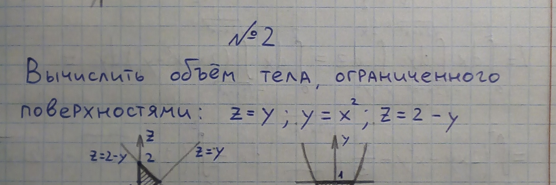 №2
Вычислить объём тела, ограниченного
поверхностями: z = y ; y = x² ; z = 2 - y
z y
z=2-y 2 z=y
1